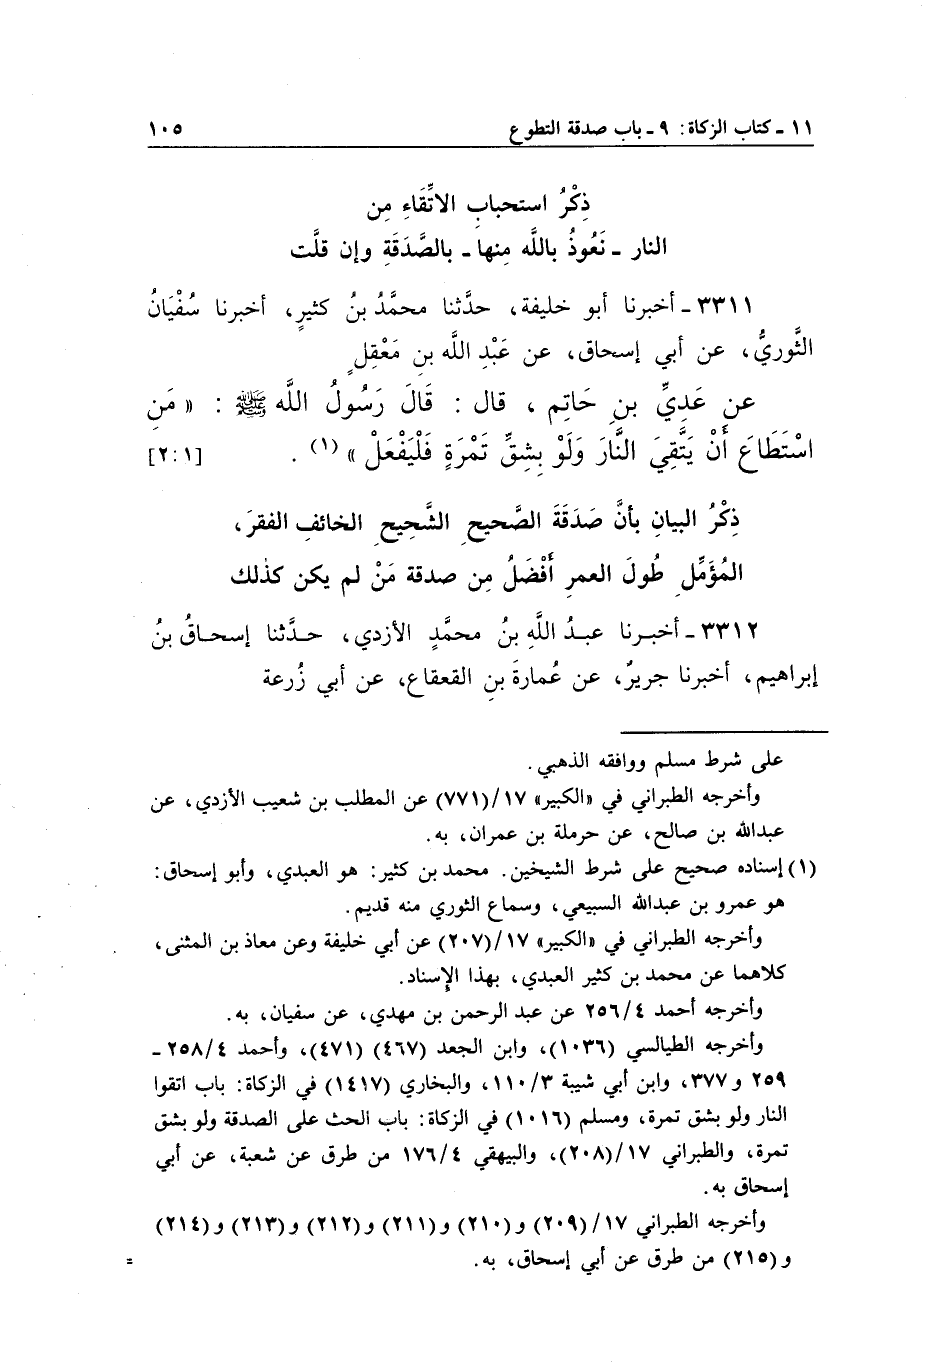 ١١ ـ كتاب الزكاة: ٩ ـ باب صدقة التطوع ١٠٥
ذِكْرُ استحبابِ الاتِّقَاءِ مِن
النار ـ نَعُوذُ باللَّه مِنها ـ بالصَّدَقَةِ وإن قلَّت
٣٣١١ ـ أخبرنا أبو خليفة، حدَّثنا محمَّدُ بنُ كثيرٍ، أخبرنا سُفْيَانُ
الثَّوريُّ، عن أبي إسحاق، عن عَبْدِ اللَّه بنِ مَعْقِلٍ
عن عَدِيِّ بنِ حَاتِمٍ، قال: قَالَ رَسُولُ اللَّه ﷺ: «مَنِ
اسْتَطَاعَ أَنْ يَتَّقِيَ النَّارَ وَلَوْ بِشِقِّ تَمْرَةٍ فَلْيَفْعَلْ»(١). [٢:١]
ذِكْرُ البيانِ بأنَّ صَدَقَةَ الصَّحيحِ الشَّحيحِ الخائفِ الفقرَ،
المُؤَمِّلِ طُولَ العمرِ أَفْضَلُ مِن صدقة مَنْ لم يكن كذلك
٣٣١٢ ـ أخبرنا عبدُ اللَّهِ بنُ محمَّدٍ الأزدي، حدَّثنا إسحاقُ بنُ
إبراهيم، أخبرنا جريرٌ، عن عُمارةَ بنِ القعقاع، عن أبي زُرعة
على شرط مسلم ووافقه الذهبي.
وأخرجه الطبراني في «الكبير» ١٧/(٧٧١) عن المطلب بن شعيب الأزدي، عن
عبدالله بن صالح، عن حرملة بن عمران، به.
(١) إسناده صحيح على شرط الشيخين. محمد بن كثير: هو العبدي، وأبو إسحاق:
هو عمرو بن عبدالله السبيعي، وسماع الثوري منه قديم.
وأخرجه الطبراني في «الكبير» ١٧/(٢٠٧) عن أبي خليفة وعن معاذ بن المثنى،
كلاهما عن محمد بن كثير العبدي، بهذا الإسناد.
وأخرجه أحمد ٢٥٦/٤ عن عبد الرحمن بن مهدي، عن سفيان، به.
وأخرجه الطيالسي (١٠٣٦)، وابن الجعد (٤٦٧) (٤٧١)، وأحمد ٢٥٨/٤ ـ
٢٥٩ و٣٧٧، وابن أبي شيبة ١١٠/٣، والبخاري (١٤١٧) في الزكاة: باب اتقوا
النار ولو بشق تمرة، ومسلم (١٠١٦) في الزكاة: باب الحث على الصدقة ولو بشق
تمرة، والطبراني ١٧/(٢٠٨)، والبيهقي ١٧٦/٤ من طرق عن شعبة، عن أبي
إسحاق به.
وأخرجه الطبراني ١٧/(٢٠٩) و(٢١٠) و(٢١١) و(٢١٢) و(٢١٣) و(٢١٤)
و(٢١٥) من طرق عن أبي إسحاق، به. =